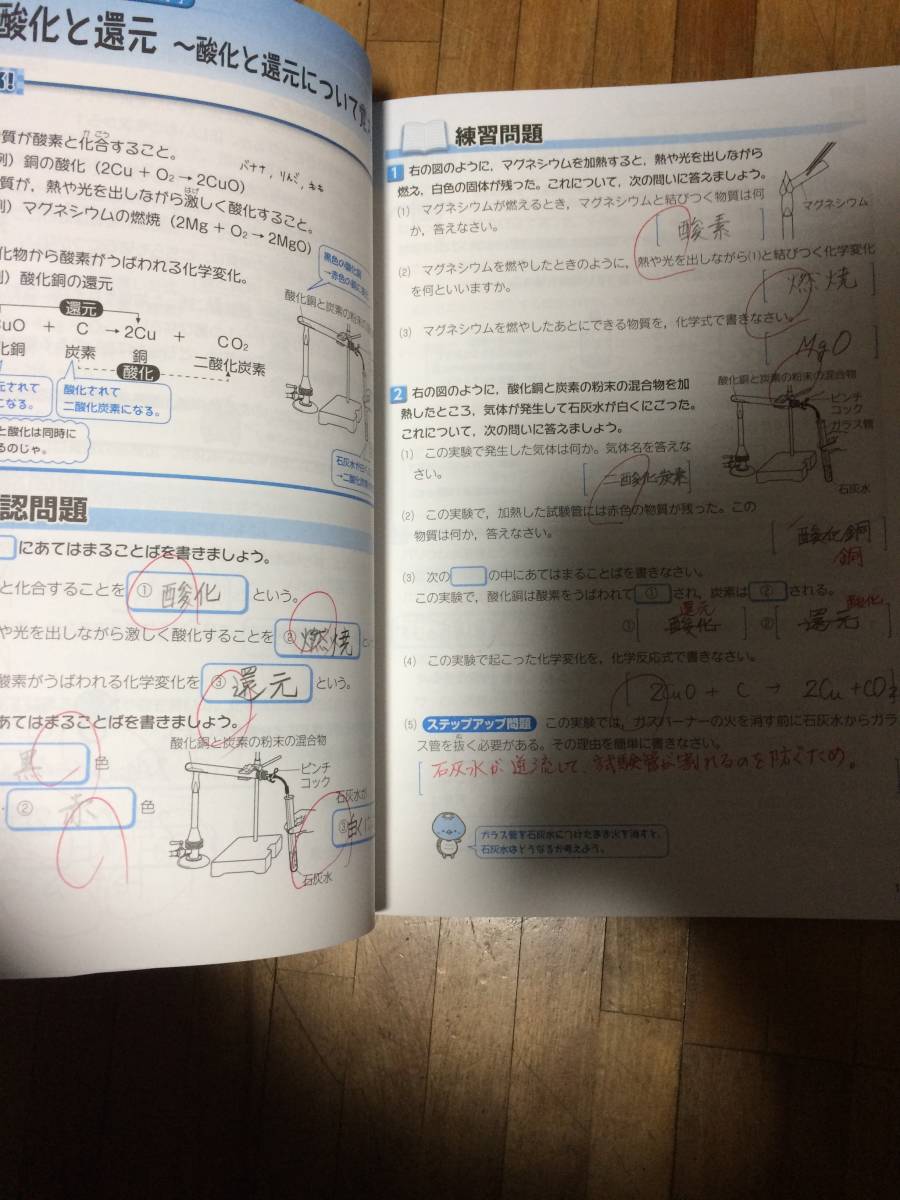 酸化と還元 〜酸化と還元について覚
る!
質が酸素と化合すること。
かごう
例)銅の酸化(2Cu + O₂→2CuO)
バナナ,りんご,
質が,熱や光を出しながら激しく酸化すること。
はげ
例)マグネシウムの燃焼(2Mg + O₂→2MgO)
化物から酸素がうばわれる化学変化。
)酸化銅の還元
黒色の酸化銅
→赤色の銅に
還元
酸化銅と炭素の粉末の
CuO + C →2Cu + CO₂
化銅 炭素 銅 二酸化炭素
酸化
元されて
になる。
酸化されて
二酸化炭素になる。
と酸化は同時に
るのじゃ。
石灰水が白く
→二酸化炭素
認問題
にあてはまることばを書きましょう。
と化合することを ① 酸化 という。
や光を出しながら激しく酸化することを ② 燃焼 とい
酸素がうばわれる化学変化を ③ 還元 という。
あてはまることばを書きましょう。
酸化銅と炭素の粉末の混合物
黒 色
ピンチ
コック
② 赤 色
石灰水が
③ 白く
石灰水
練習問題
1 右の図のように,マグネシウムを加熱すると,熱や光を出しながら
燃え,白色の固体が残った。これについて,次の問いに答えましょう。
マグネシウム
(1) マグネシウムが燃えるとき,マグネシウムと結びつく物質は何
か,答えなさい。
[ 酸素 ]
(2) マグネシウムを燃やしたときのように,熱や光を出しながら(1)と結びつく化学変化
を何といいますか。
[ 燃焼 ]
(3) マグネシウムを燃やしたあとにできる物質を,化学式で書きなさい。
[ MgO ]
酸化銅と炭素の粉末の混合物
2 右の図のように,酸化銅と炭素の粉末の混合物を加
熱したところ,気体が発生して石灰水が白くにごった。
これについて,次の問いに答えましょう。
ピンチ
コック
ガラス管
石灰水
(1) この実験で発生した気体は何か。気体名を答えな
さい。
[ 二酸化炭素 ]
(2) この実験で,加熱した試験管には赤色の物質が残った。この
物質は何か,答えなさい。
[ 酸化銅 ]
銅
(3) 次の の中にあてはまることばを書きなさい。
この実験で,酸化銅は酸素をうばわれて ① され,炭素は ② される。
還元 酸化
①[ 酸化 ] ②[ 還元 ]
(4) この実験で起こった化学変化を,化学反応式で書きなさい。
[ 2CuO + C → 2Cu + CO₂ ]
(5) ステップアップ問題 この実験では,ガスバーナーの火を消す前に石灰水からガラ
ス管を抜く必要がある。その理由を簡単に書きなさい。
ぬ
[ 石灰水が逆流して、試験管が割れるのを防ぐため。
ガラス管を石灰水につけたまま火を消すと,
石灰水はどうなるか考えよう。